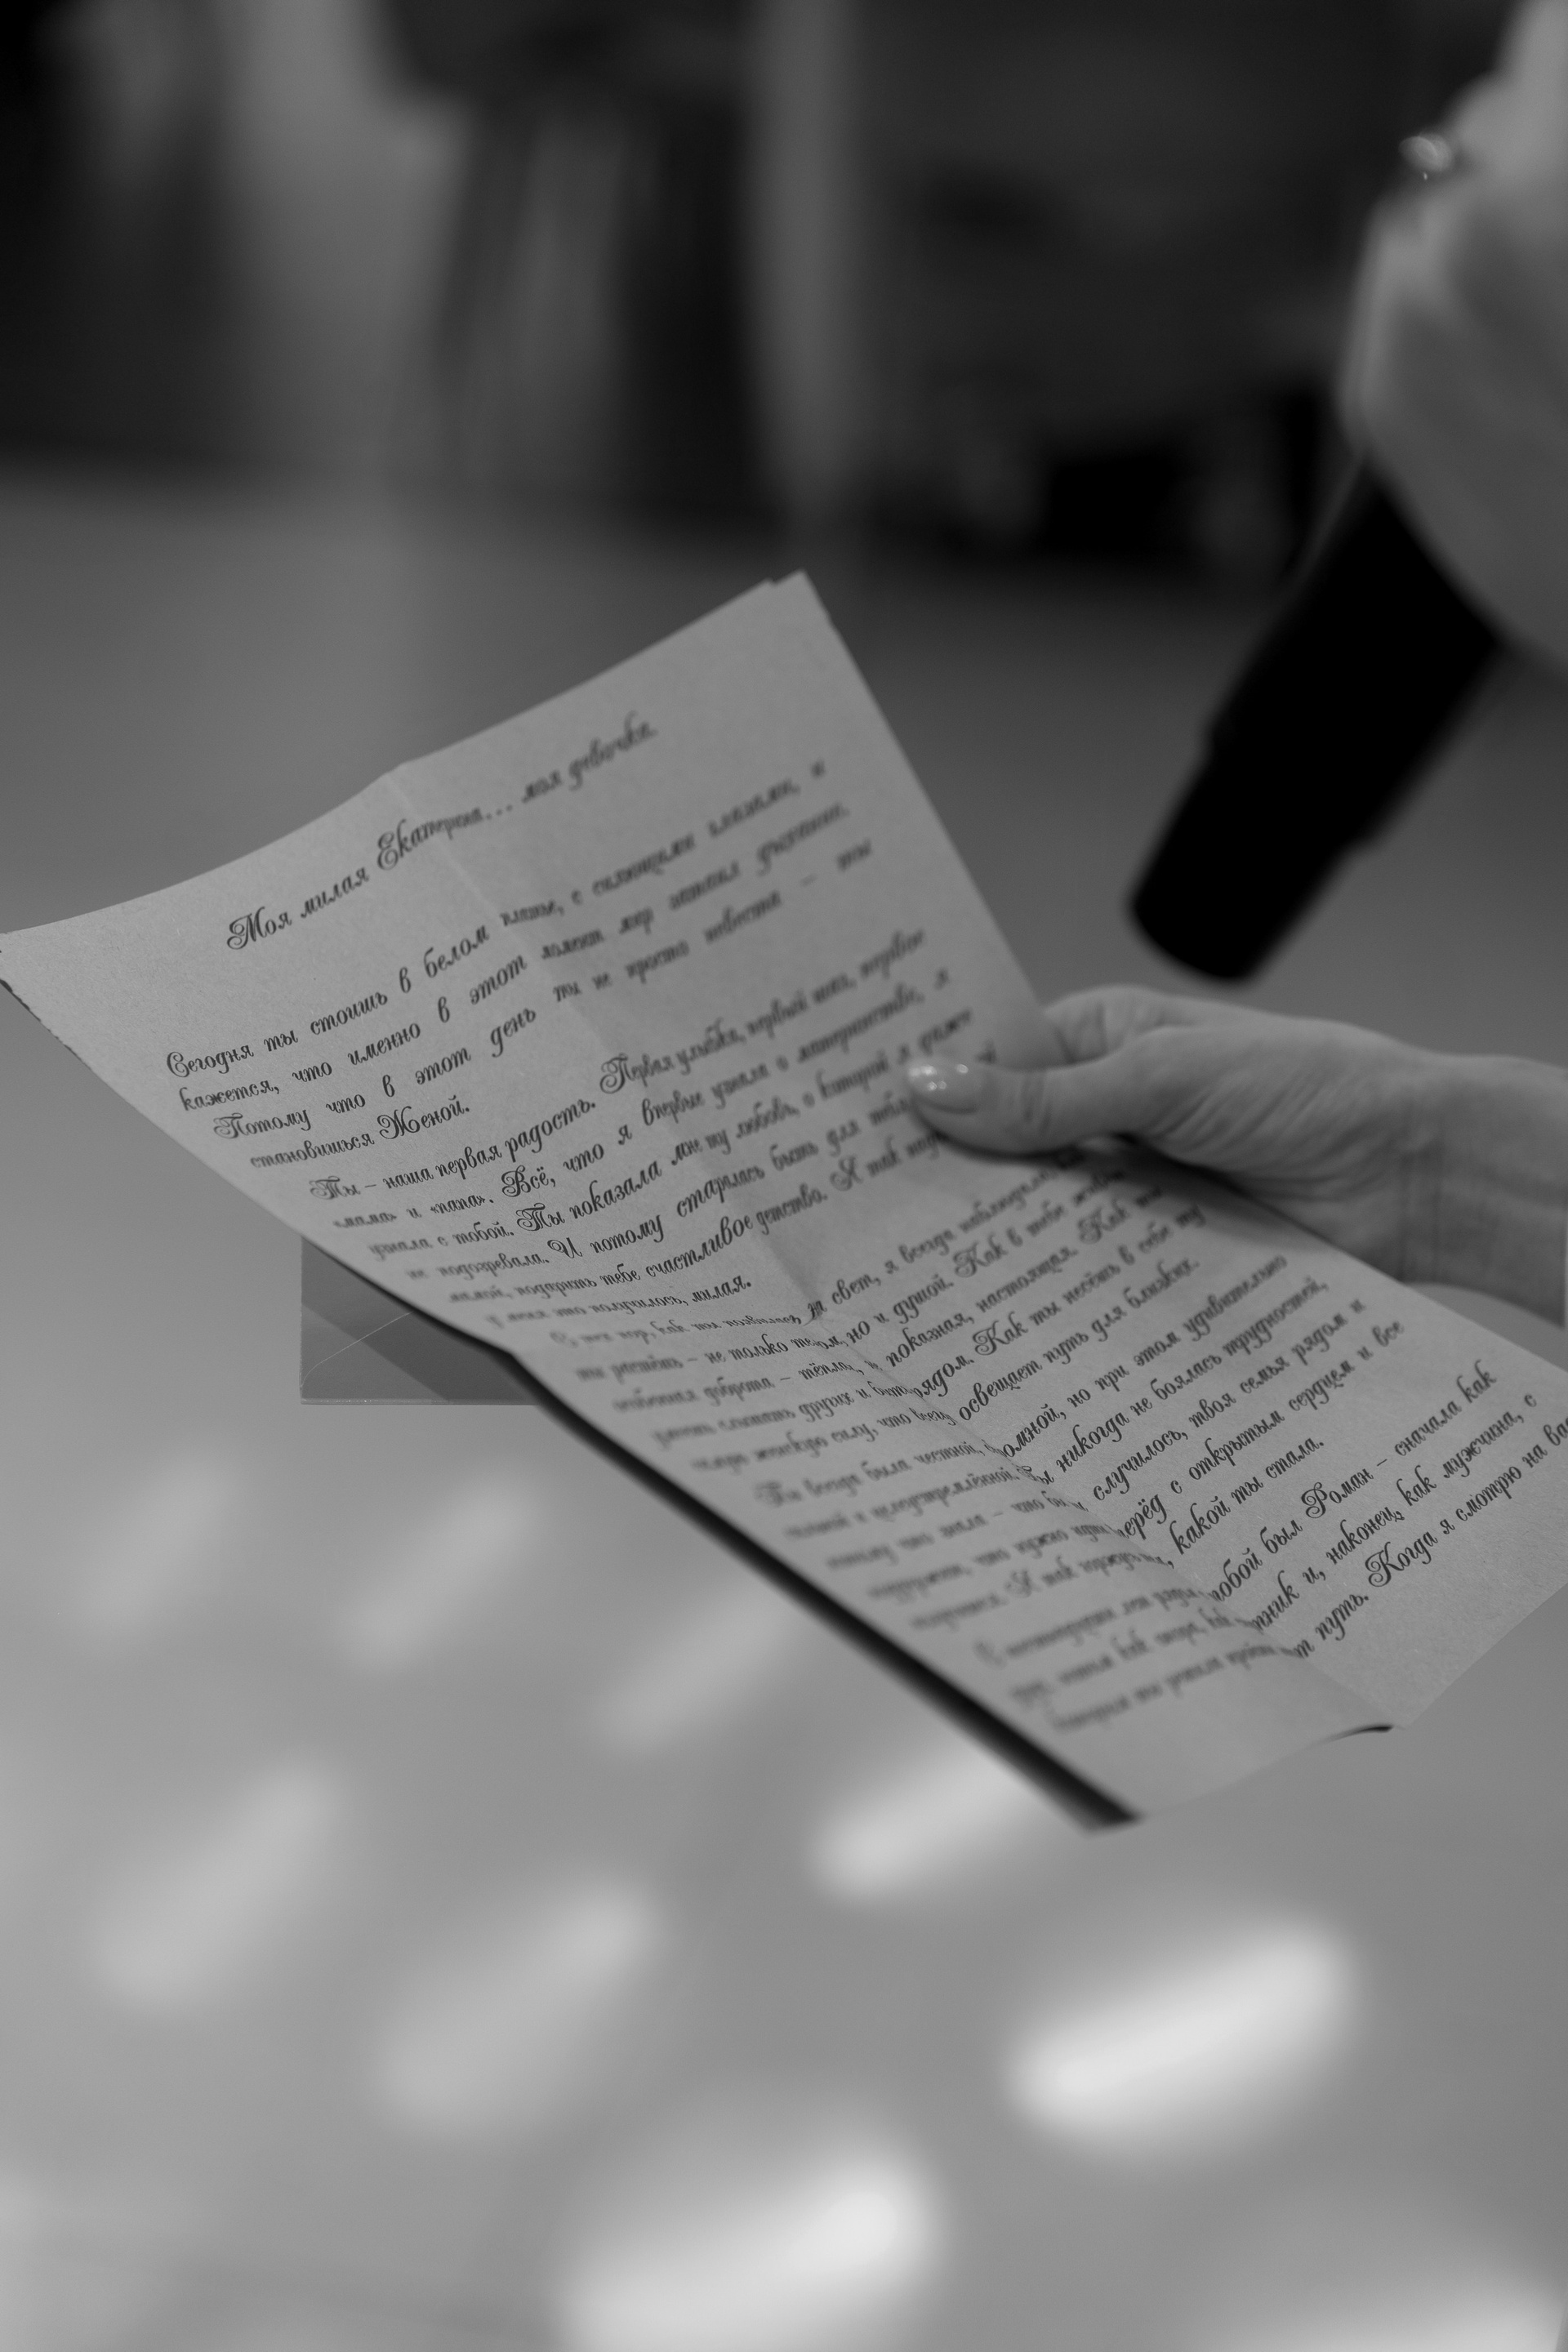 Моя милая Екатерина... моя девочка.
Сегодня ты стоишь в белом платье, с сияющими глазами, и
кажется, что именно в этот момент мир затаил дыхание.
Потому что в этот день ты не просто невеста – ты
становишься Женой.
Ты – наша первая радость. Первая улыбка, первый шаг, первое
«мама» и «папа». Всё, что я впервые узнала о материнстве, я
узнала с тобой. Ты показала мне ту любовь, о которой я даже
не подозревала. И потому старалась быть для тебя
подарить тебе счастливое детство. Я так
у меня это получилось, милая.
С тех пор, как ты появилась на свет, я всегда наблюдала,
ты растёшь – не только телом, но и душой. Как в тебе
особенная доброта – тёплая, не показная, настоящая. Как
умеешь слышать других и быть рядом. Как ты несёшь в себе ту
женскую силу, что освещает путь для близких.
Ты всегда была честной, скромной, но при этом удивительно
сильной и целеустремлённой. Ты никогда не боялась трудностей,
потому что знала – что бы ни случилось, твоя семья рядом и
поддержит, что нужно идти вперёд с открытым сердцем и все
получится. Я так горжусь тем, какой ты стала.
рядом с тобой был Роман – сначала как
друг, и, наконец, как мужчина, с
путь. Когда я смотрю на вас